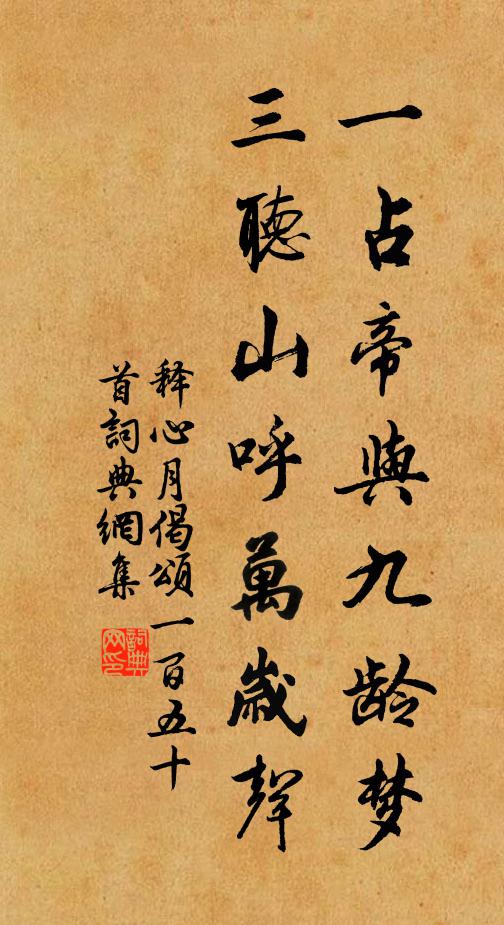 一占帝與九龄梦
三聽山呼萬歲聲
释心月偈頌一百五十
首詞典網集
詞典网印